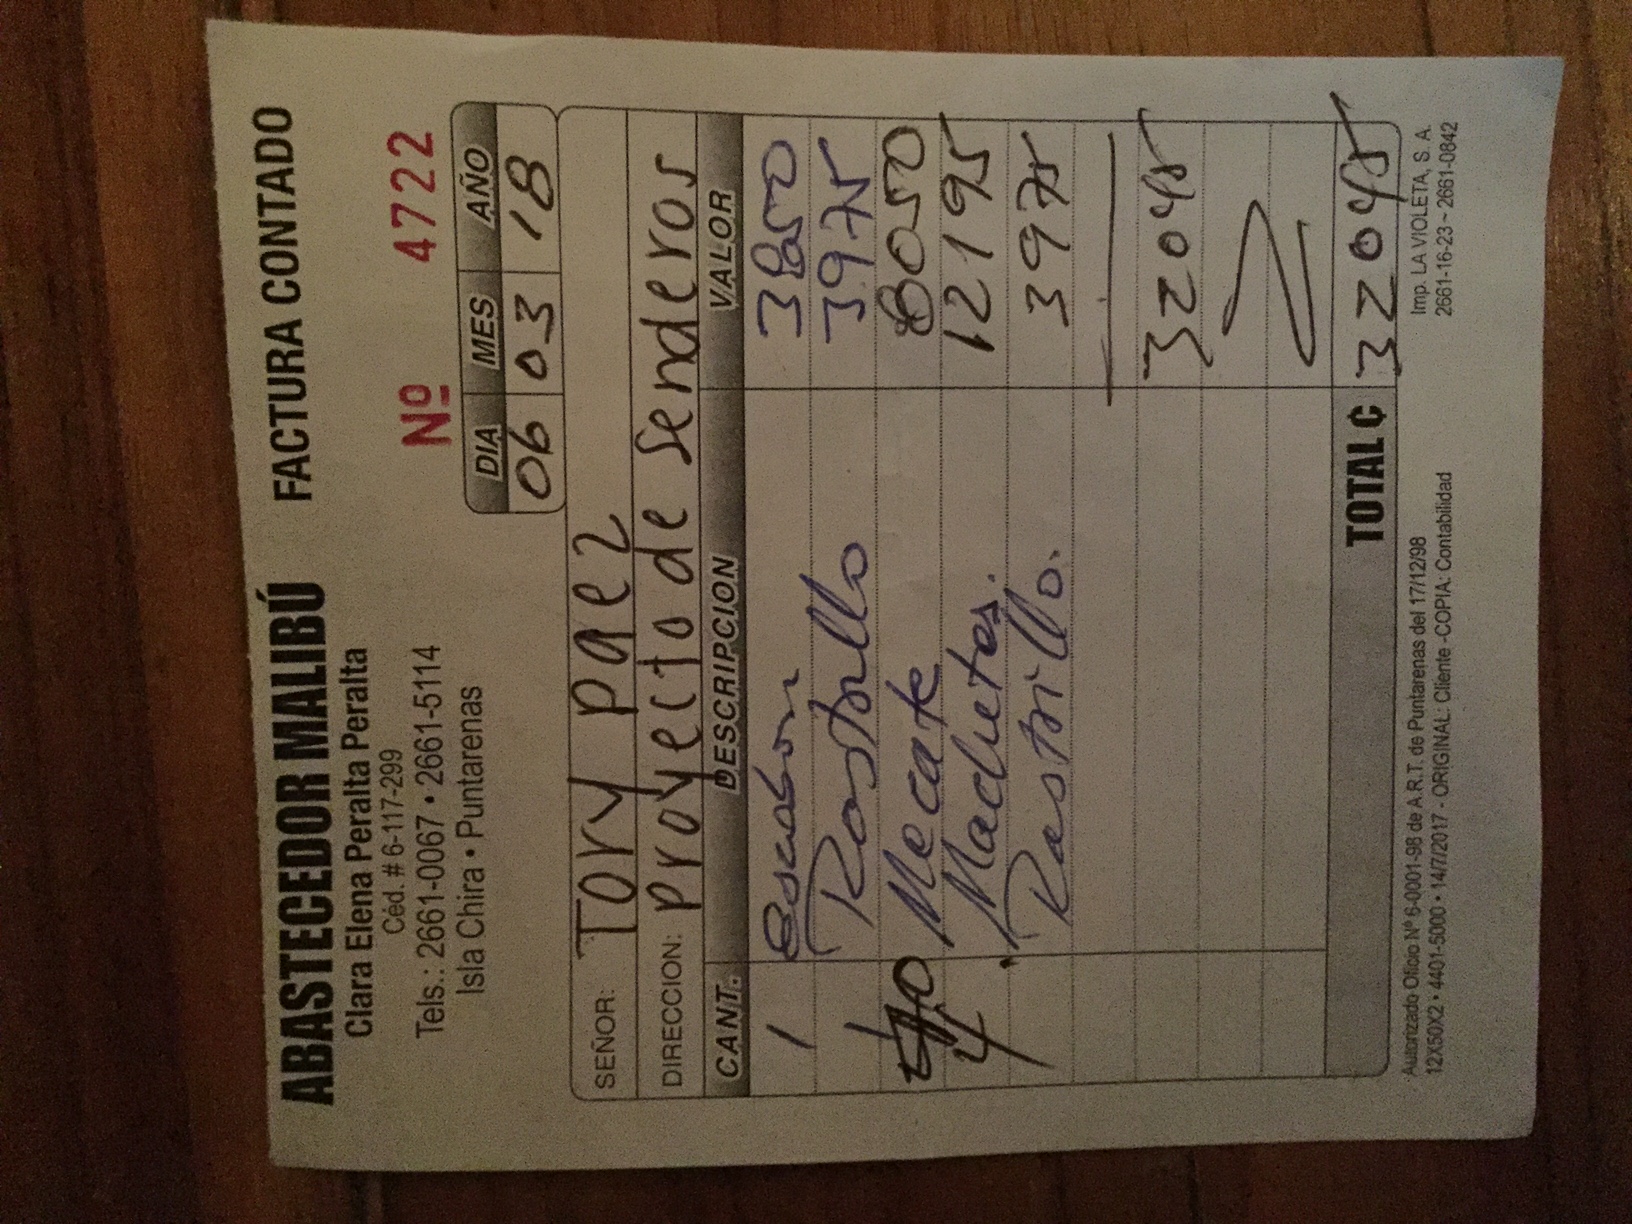 ABASTECEDOR MALIBÚ FACTURA CONTADO
Clara Elena Peralta Peralta
Céd. # 6-117-299
Tels.: 2661-0067 • 2661-5114
Isla Chira • Puntarenas
Nº 4722
DIA MES AÑO
06 03 18
SEÑOR: Tory Paez
DIRECCION: proyecto de senderos
CANT. DESCRIPCION VALOR
1 Escabon 3850
1 Rastrillo 3975
Mecate 8050
4 Machetes. 12195
Rastrillo. 3975
32045
TOTAL ₡ 32045
Autorizado Oficio Nº 6-0001-98 de A.R.T. de Puntarenas del 17/12/98
12X50X2 • 4401-5000 • 14/7/2017 - ORIGINAL: Cliente -COPIA: Contabilidad
Imp. LA VIOLETA, S. A.
2661-16-23 – 2661-0842